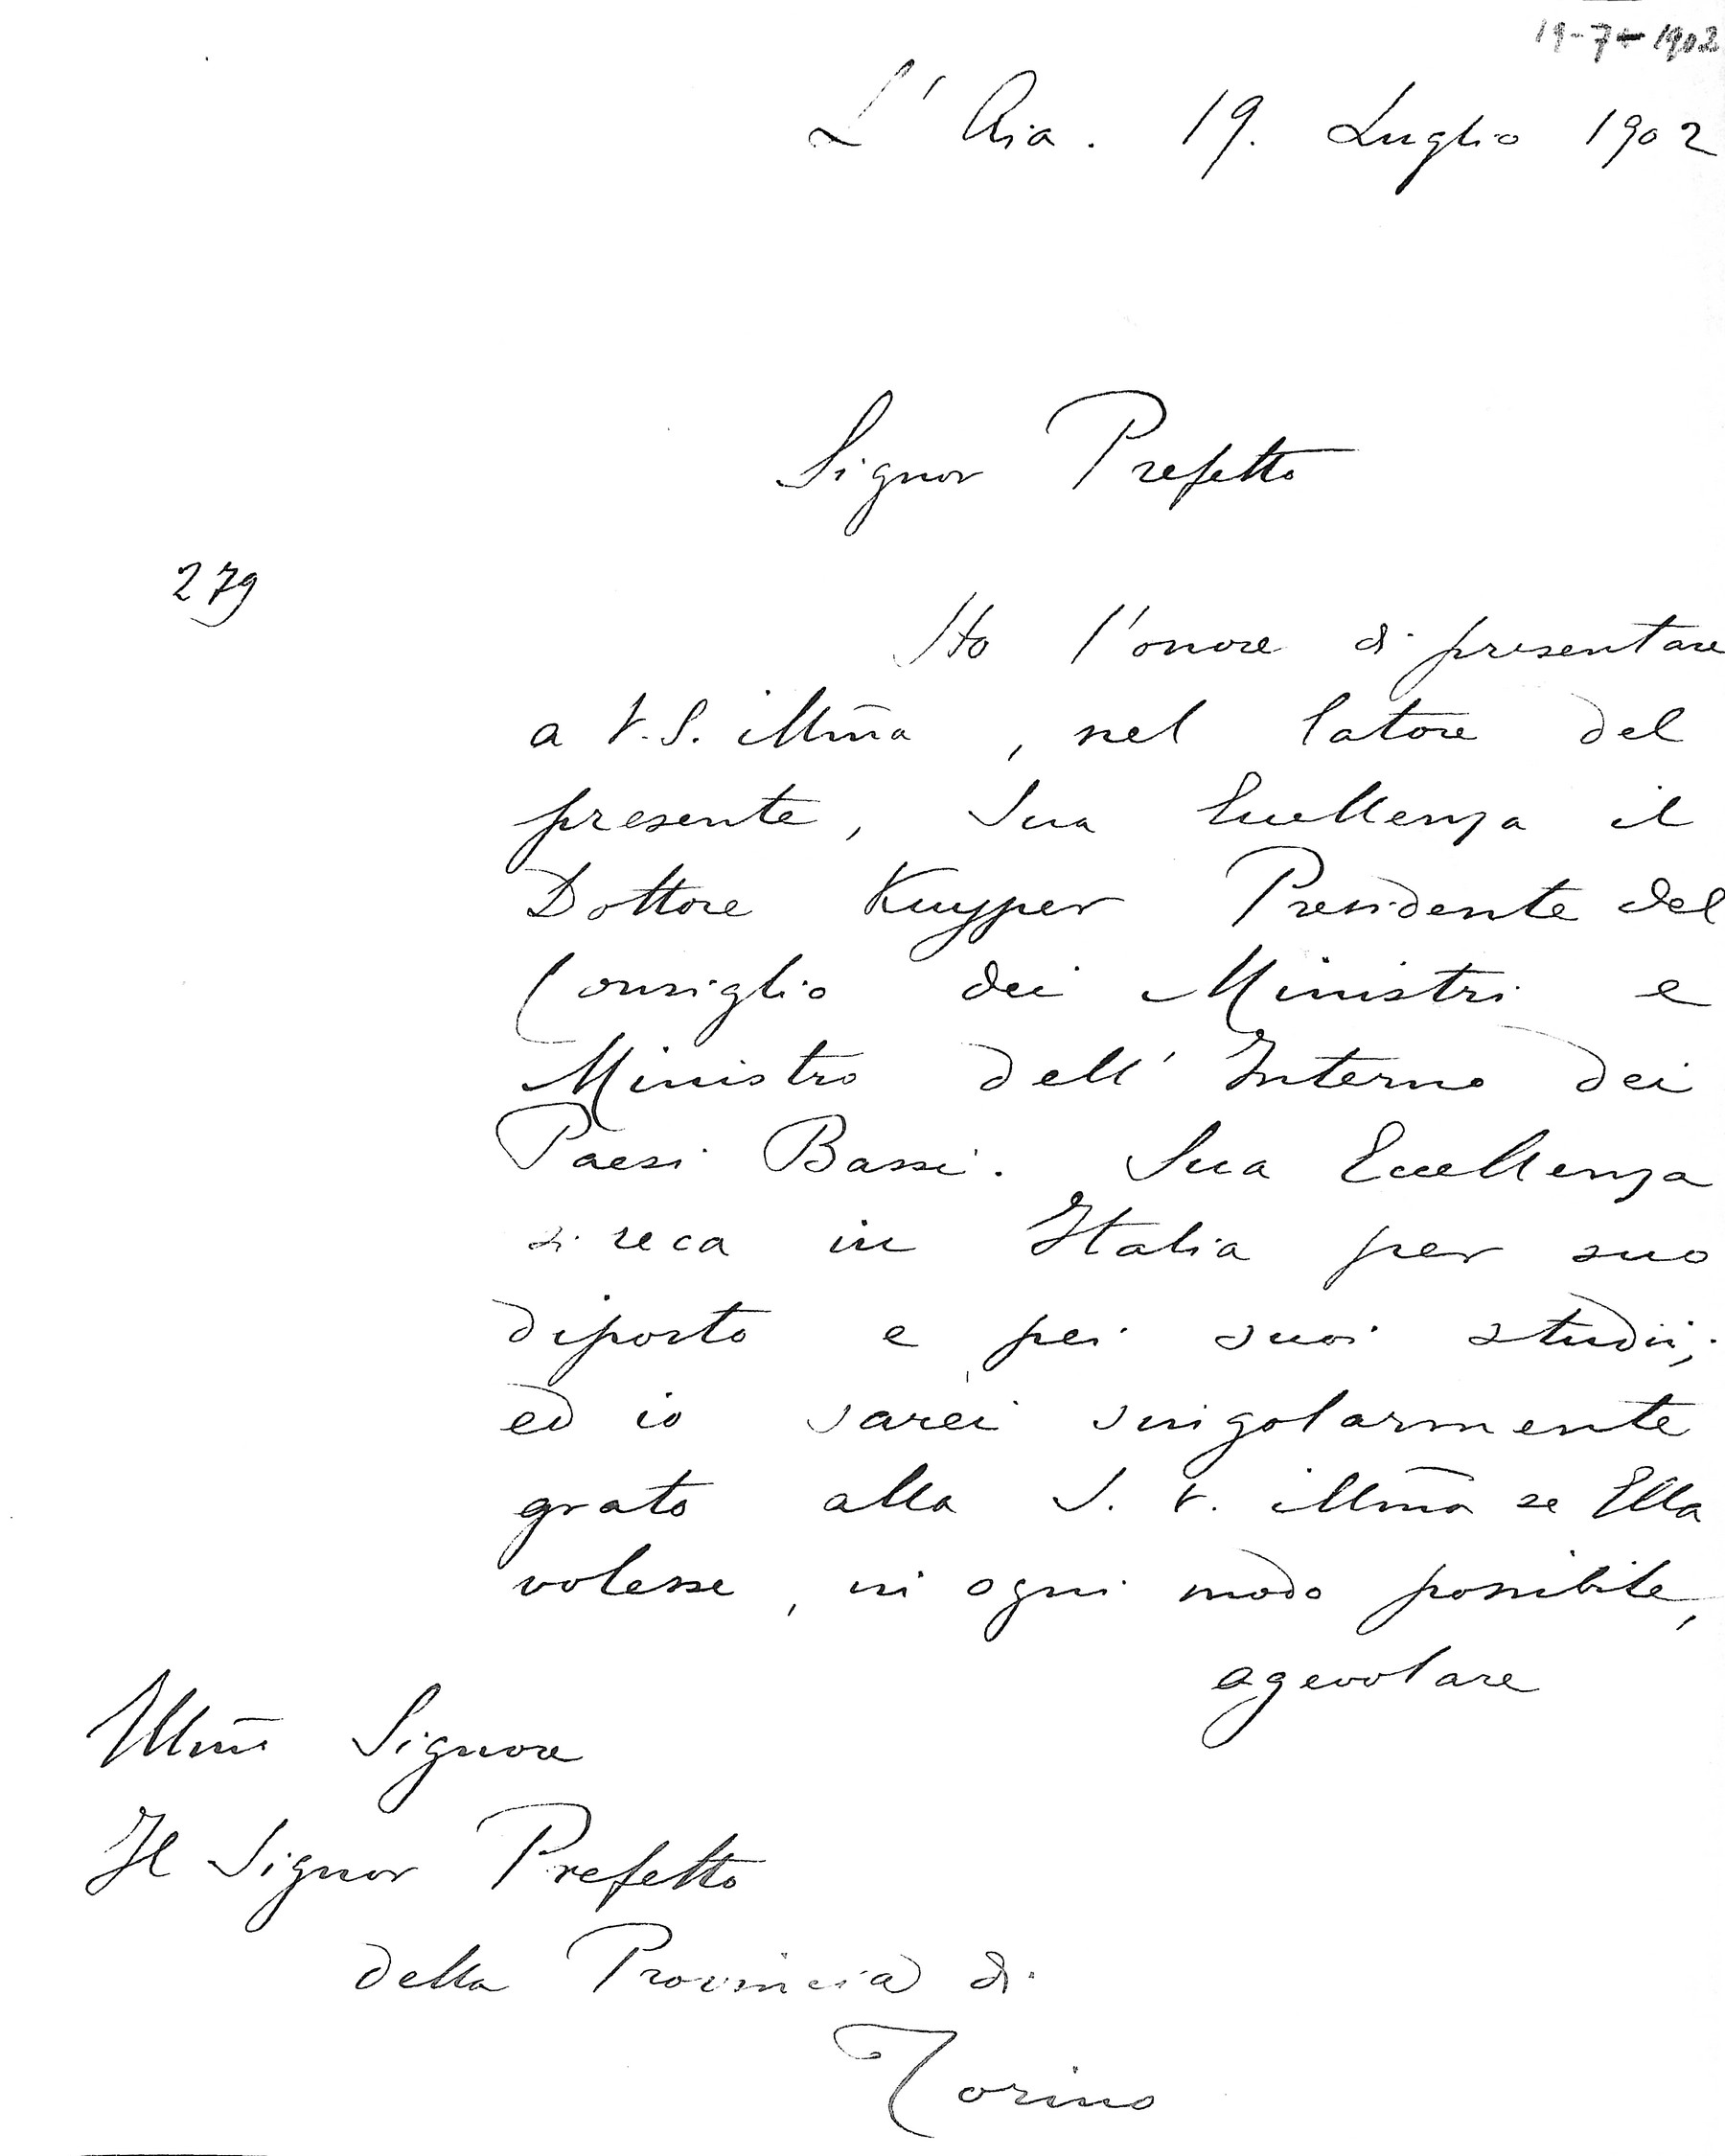 19-7-1902
L'Aia. 19. Luglio 1902
Signor Prefetto
279
Ho l'onore di presentare
a V.S. illm̃a, nel latore del
presente, Sua Eccellenza il
Dottore Kuyper Presidente del
Consiglio dei Ministri e
Ministro dell'Interno dei
Paesi Bassi. Sua Eccellenza
si reca in Italia per suo
diporto e pei suoi studii;
ed io sarei singolarmente
grato alla S.V. illm̃a se Ella
volesse, in ogni modo possibile,
agevolare
Illm̃o Signore
Il Signor Prefetto
della Provincia di
Torino